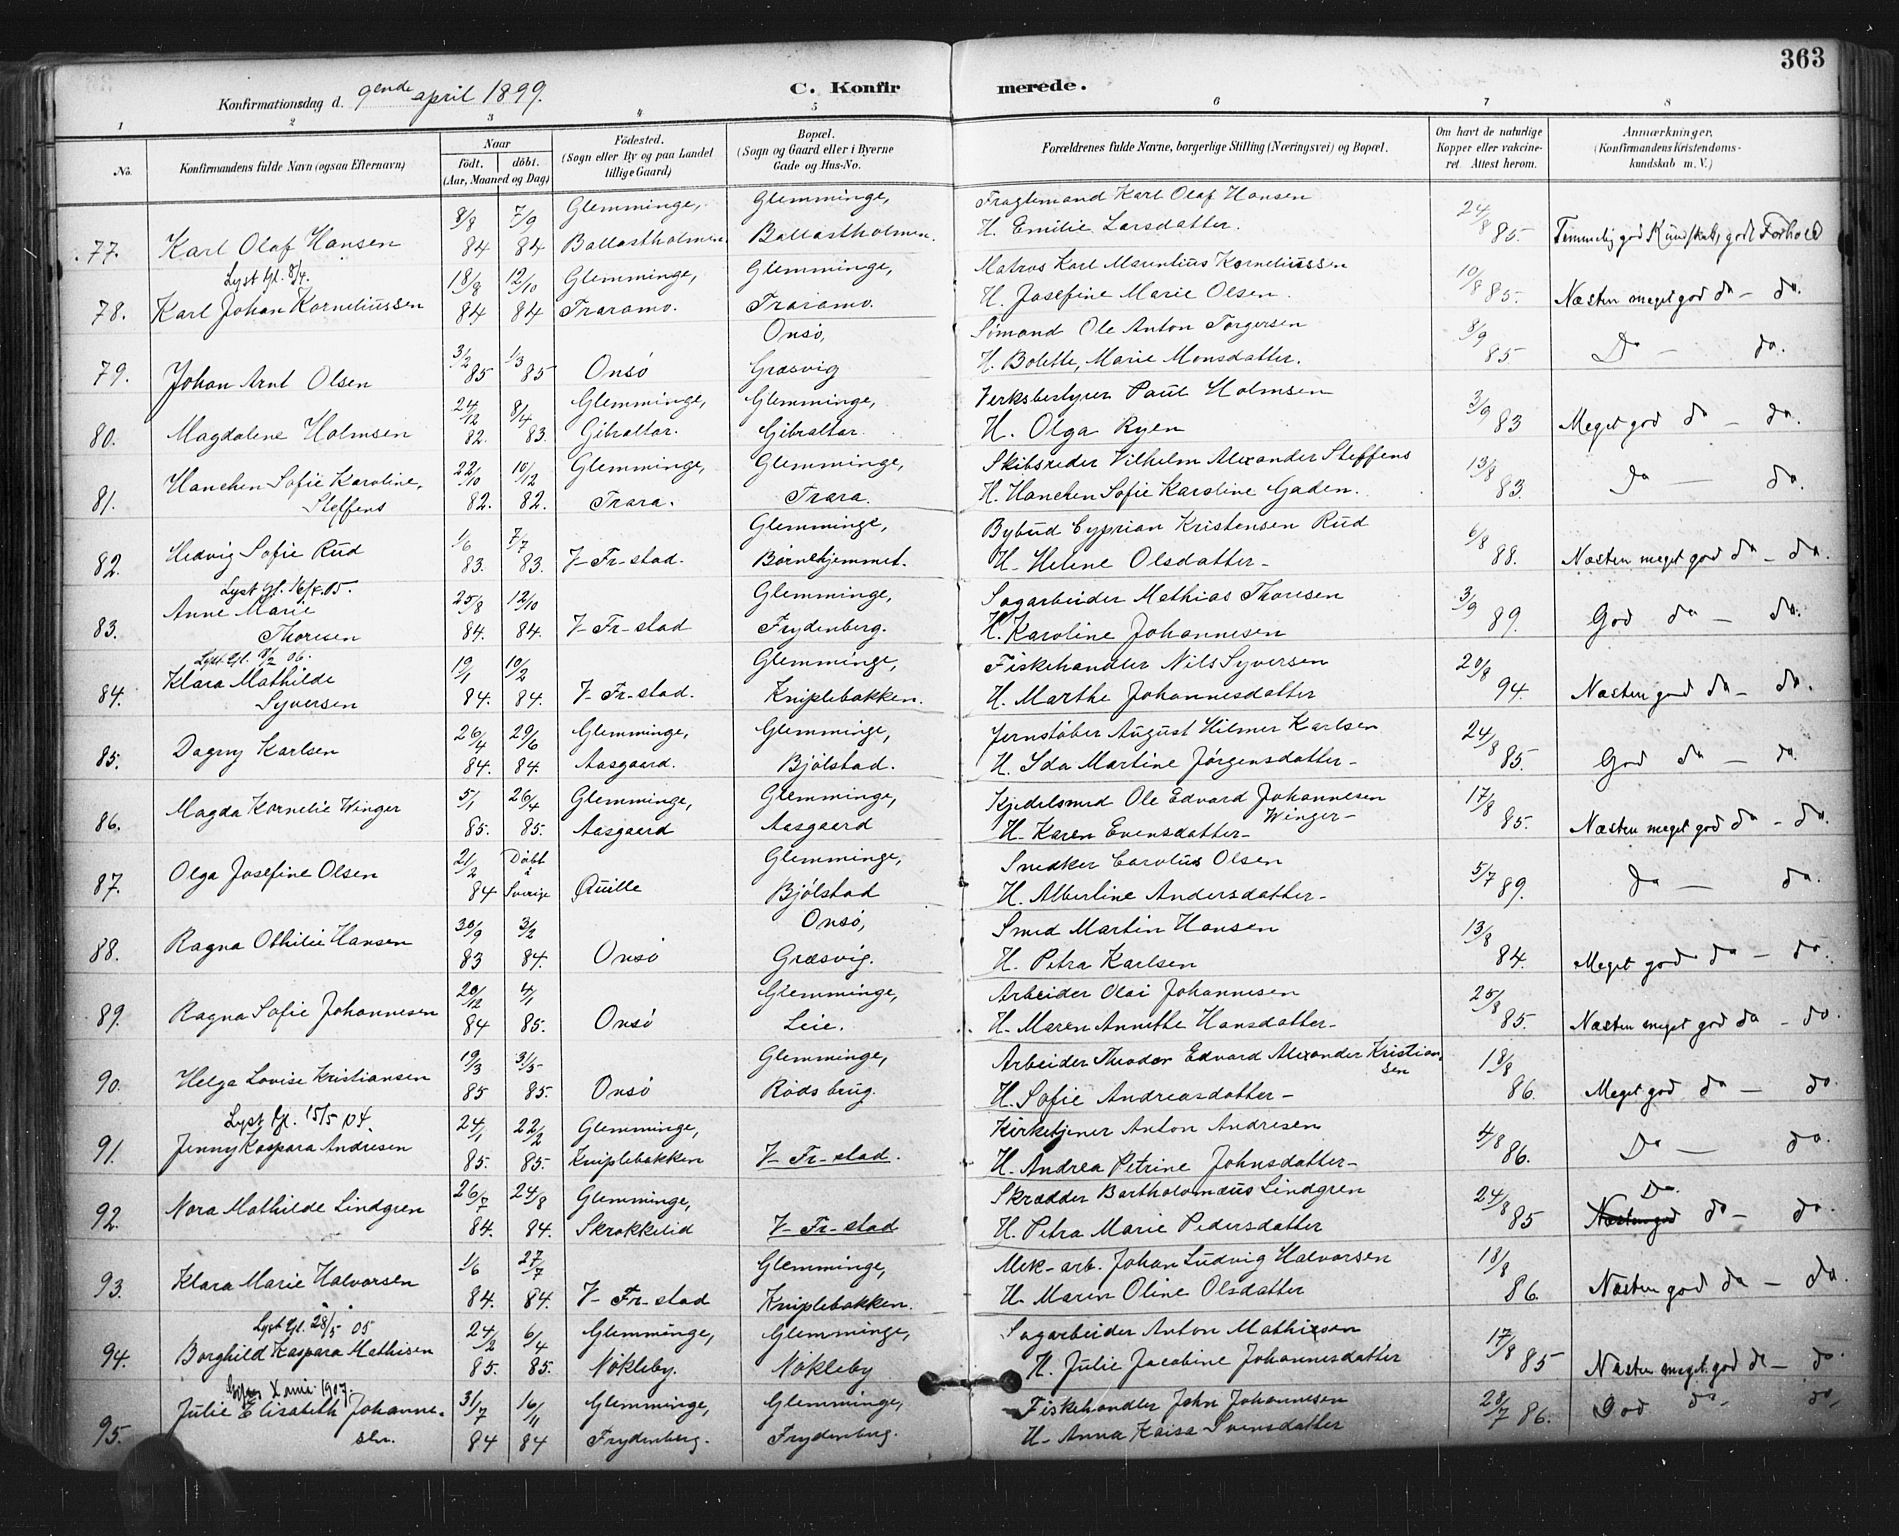 363
Konfirmationsdag d. 9ende april 1899. C. Konfir merede.
1 2 3 4 5 6 7 8
No. Konfirmandens fulde Navn (ogsaa Efternavn) Naar født. døbt. (Aar, Maaned og Dag) Fødested. (Sogn eller By og paa Landet tillige Gaard) Bopæl. (Sogn og Gaard eller i Byerne Gade og Hus-No. Forældrenes fulde Navne, borgerlige Stilling (Næringsvei) og Bopæl. Om havt de naturlige Kopper eller vakcineret. Attest herom. Anmærkninger. (Konfirmandens Kristendomskundskab m. V.)
8/8 7/9 Glemminge, Glemminge, Karl Olaf Hansen 24/8
77. Karl Olaf Hansen 84 84 Ballastholmen Ballastholmen. H. Emilie Larsdatter. 85. Temmelig god Kundskab, godt Forhold
Lyst Gl. 8/4. 18/8 12/10 Glemminge, Glemminge, Matros Karl Marentius Korneliussen 10/8
78. Karl Johan Korneliussen 84 84 Traramo. Traramo. H. Josefine Marie Olsen. 85. Næsten meget god do - do.
3/2 1/3 Onsö, Sømand Ole Anton Torgersen 8/9
79. Johan Arnt Olsen 85 85 Onsö Græsvig H. Bolette Marie Monsdatter. 85 Do - do.
24/12 8/4 Glemminge, Glemminge, Verksbestyrer Paul Holmsen 3/9
80. Magdalene Holmsen 82. 83. Gibraltar. Gibraltar. H. Olga Ryen 83 Meget god do - do.
22/10 10/12 Glemminge, Glemminge, Skibsreder Vilhelm Alexander Steffens 13/8
81. Hanchen Sofie Karoline, Steffens 82. 82. Trara. Trara. H. Hanchen Sofie Karoline Gaden. 83. Do - do.
1/6 7/7 Glemminge, Bybud Cyprian Kristensen Rud 6/8
82. Hedvig Sofie Rud 83. 83. V-Fr-stad. Børnehjemmet. H. Helene Olsdatter- 88. Næsten meget god do - do.
Lyst Gl. 05.
Anne Marie 25/8 12/10 Glemminge, Sagarbeider Mathias Thoresen 3/9
83. Thoresen 84. 84. V-Fr-stad Frydenberg. H. Karoline Johannesen 89. God do - do.
Lyst Gl. 9/2 06.
Klara Mathilde 19/1 10/2 Glemminge, Fiskehandler Nils Syversen 20/8
84. Syversen 84. 84. V-Fr-stad. Kniplebakken. H. Marthe Johannesdatter 94. Næsten god do - do.
26/4 29/6 Glemminge, Glemminge, Jernstøber August Hilmer Karlsen 24/8
85. Dagny Karlsen 84. 84. Aasgaard. Bjölstad. H. Ida Martine Jørgensdatter- 85. God do - do.
5/1 26/4 Glemminge, Glemminge, Kjedelsmed Ole Edvard Johannesen Winger- 17/8
86. Magda Kornelie Winger 85. 85. Aasgaard Aasgaard H. Karen Evensdatter- 85. Næsten meget god do - do.
21/2 Döbt i Glemminge, Snedker Carolus Olsen 5/7
87. Olga Josefine Olsen 84 Sverige Quille Bjölstad H. Albertine Andersdatter- 89. Do - do.
30/9 3/2 Onsö, Smed Martin Hansen 13/8
88. Ragna Othilie Hansen 83 84. Onsö Græsvig. H. Petra Karlsen 84. Meget god do - do.
20/12 4/1 Glemminge, Arbeider Olai Johannesen 25/8
89. Ragna Sofie Johannesen 84 85. Onsö Leie. H. Maren Annethe Hansdatter- 85. Næsten meget god do - do.
19/3 31/5 Glemminge, Arbeider Theodor Edvard Alexander Kristiansen 18/8
90. Helga Lovise Kristiansen 85 85. Onsö Rødsbrug. H. Sofie Andreasdatter- 86. Meget god do - do.
Lyst Gl. 15/5 04. 24/1 22/2 Glemminge, Kirketjener Anton Andresen 4/8
91. Jenny Kaspara Andresen 85. 85. Kniplebakken V-Fr-stad. H. Andrea Petrine Johnsdatter- 86. Do - do.
26/7 24/8 Glemminge, Skrædder Bartholomæus Lindgren 24/8 Do.
92. Nora Mathilde Lindgren 84. 84. Skrakkelid V-Fr-stad H. Petra Marie Pedersdatter 85 Næsten god do - do.
1/6 27/7 Glemminge, Mek-arb. Johan Ludvig Halvorsen 18/8
93. Klara Marie Halvorsen 84. 84. V-Fr-stad Kniplebakken. H. Maren Oline Olsdatter 86. Næsten god do - do.
Lyst Gl. 28/5 05 24/2 6/4 Glemminge, Glemminge, Sagarbeider Anton Mathiesen 17/8
94. Borghild Kaspara Mathisen 85. 85. Nökleby. Nökleby H. Julie Jacobine Johannesdatter 85 Næsten meget god do - do
1907.
Julie Elisabeth Johanne- 31/7 16/11 Glemminge, Glemminge, Fiskehandler John Johannesen 28/7
95. sen. 84 84 Frydenberg. Frydenberg. H. Anna Kaisa Svensdatter 86. God do- do,